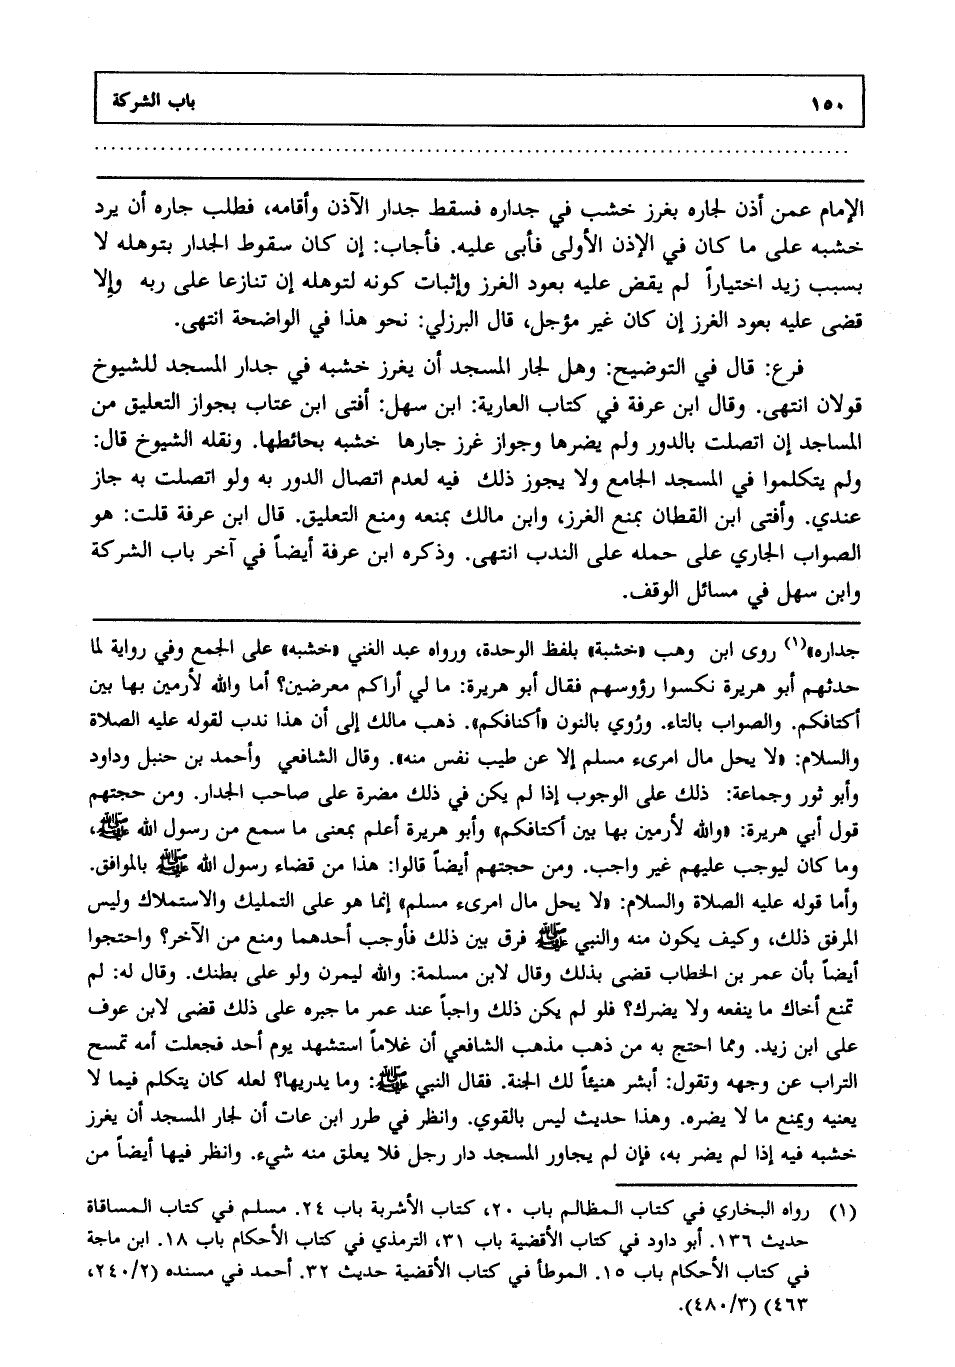 ١٥٠ باب الشركة
الإمام عمن أذن لجاره بغرز خشب في جداره فسقط جدار الآذن وأقامه، فطلب جاره أن يرد
خشبه على ما كان في الإذن الأولى فأبى عليه. فأجاب: إن كان سقوط الجدار بتوهله لا
بسبب زيد اختياراً لم يقض عليه بعود الغرز وإثبات كونه لتوهله إن تنازعا على ربه وإلا
قضى عليه بعود الغرز إن كان غير مؤجل، قال البرزلي: نحو هذا في الواضحة انتهى.
فرع: قال في التوضيح: وهل لجار المسجد أن يغرز خشبه في جدار المسجد للشيوخ
قولان انتهى. وقال ابن عرفة في كتاب العارية: ابن سهل: أفتى ابن عتاب بجواز التعليق من
المساجد إن اتصلت بالدور ولم يضرها وجواز غرز جارها خشبه بحائطها. ونقله الشيوخ قال:
ولم يتكلموا في المسجد الجامع ولا يجوز ذلك فيه لعدم اتصال الدور به ولو اتصلت به جاز
عندي. وأفتى ابن القطان بمنع الغرز، وابن مالك بمنعه ومنع التعليق. قال ابن عرفة قلت: هو
الصواب الجاري على حمله على الندب انتهى. وذكره ابن عرفة أيضاً في آخر باب الشركة
وابن سهل في مسائل الوقف.
جداره»(١) روى ابن وهب «خشبة» بلفظ الوحدة، ورواه عبد الغني «خشبه» على الجمع وفي رواية لما
حدثهم أبو هريرة نكسوا رؤوسهم فقال أبو هريرة: ما لي أراكم معرضين؟ أما والله لأرمين بها بين
أكتافكم. والصواب بالتاء. ورُوي بالنون «أكنافكم». ذهب مالك إلى أن هذا ندب لقوله عليه الصلاة
والسلام: «لا يحل مال امرىء مسلم إلا عن طيب نفس منه». وقال الشافعي وأحمد بن حنبل وداود
وأبو ثور وجماعة: ذلك على الوجوب إذا لم يكن في ذلك مضرة على صاحب الجدار. ومن حجتهم
قول أبي هريرة: «والله لأرمين بها بين أكتافكم» وأبو هريرة أعلم بمعنى ما سمع من رسول الله ﷺ،
وما كان ليوجب عليهم غير واجب. ومن حجتهم أيضاً قالوا: هذا من قضاء رسول الله ﷺ بالموافق.
وأما قوله عليه الصلاة والسلام: «لا يحل مال امرىء مسلم» إنما هو على التمليك والاستملاك وليس
المرفق ذلك، وكيف يكون منه والنبي ﷺ فرق بين ذلك فأوجب أحدهما ومنع من الآخر؟ واحتجوا
أيضاً بأن عمر بن الخطاب قضى بذلك وقال لابن مسلمة: والله ليمرن ولو على بطنك. وقال له: لم
تمنع أخاك ما ينفعه ولا يضرك؟ فلو لم يكن ذلك واجباً عند عمر ما جبره على ذلك قضى لابن عوف
على ابن زيد. ومما احتج به من ذهب مذهب الشافعي أن غلاماً استشهد يوم أحد فجعلت أمه تمسح
التراب عن وجهه وتقول: أبشر هنيئاً لك الجنة. فقال النبي ﷺ: وما يدريها؟ لعله كان يتكلم فيما لا
يعنيه ويمنع ما لا يضره. وهذا حديث ليس بالقوي. وانظر في طرر ابن عات أن لجار المسجد أن يغرز
خشبه فيه إذا لم يضر به، فإن لم يجاور المسجد دار رجل فلا يعلق منه شيء. وانظر فيها أيضاً من
(١) رواه البخاري في كتاب المظالم باب ٢٠، كتاب الأشربة باب ٢٤. مسلم في كتاب المساقاة
حديث ١٣٦. أبو داود في كتاب الأقضية باب ٣١، الترمذي في كتاب الأحكام باب ١٨. ابن ماجة
في كتاب الأحكام باب ١٥. الموطأ في كتاب الأقضية حديث ٣٢. أحمد في مسنده (٢/٢٤٠،
٤٦٣) (٣/٤٨٠).